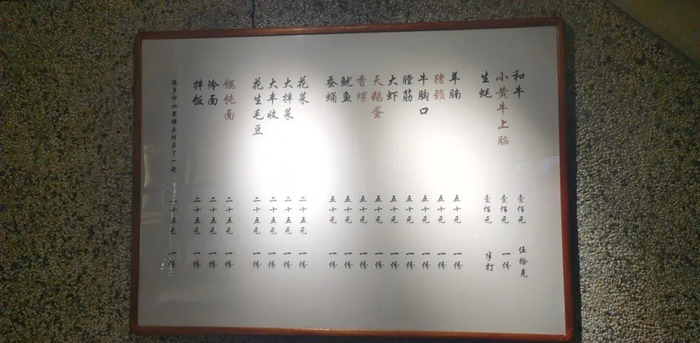 和牛 壹佰元 伍拾克
小黄牛上脑 壹佰元 一份
生蚝 壹佰元 半打
羊腩 五十元 一份
猪颈 五十元 一份
牛胸口 五十元 一份
膛筋 五十元 一份
大虾 五十元 一份
天鹅蛋 五十元 一份
香螺 五十元 一份
鱿鱼 五十元 一份
蚕蛹 五十元 一份
花菜 二十五元 一份
大拌菜 二十五元 一份
大丰收 二十五元 一份
花生毛豆 二十五元 一份
馄饨面 二十五元 一份
冷面 二十五元 一份
拌饭 二十五元 一份
很多种水果 二十五元 一份